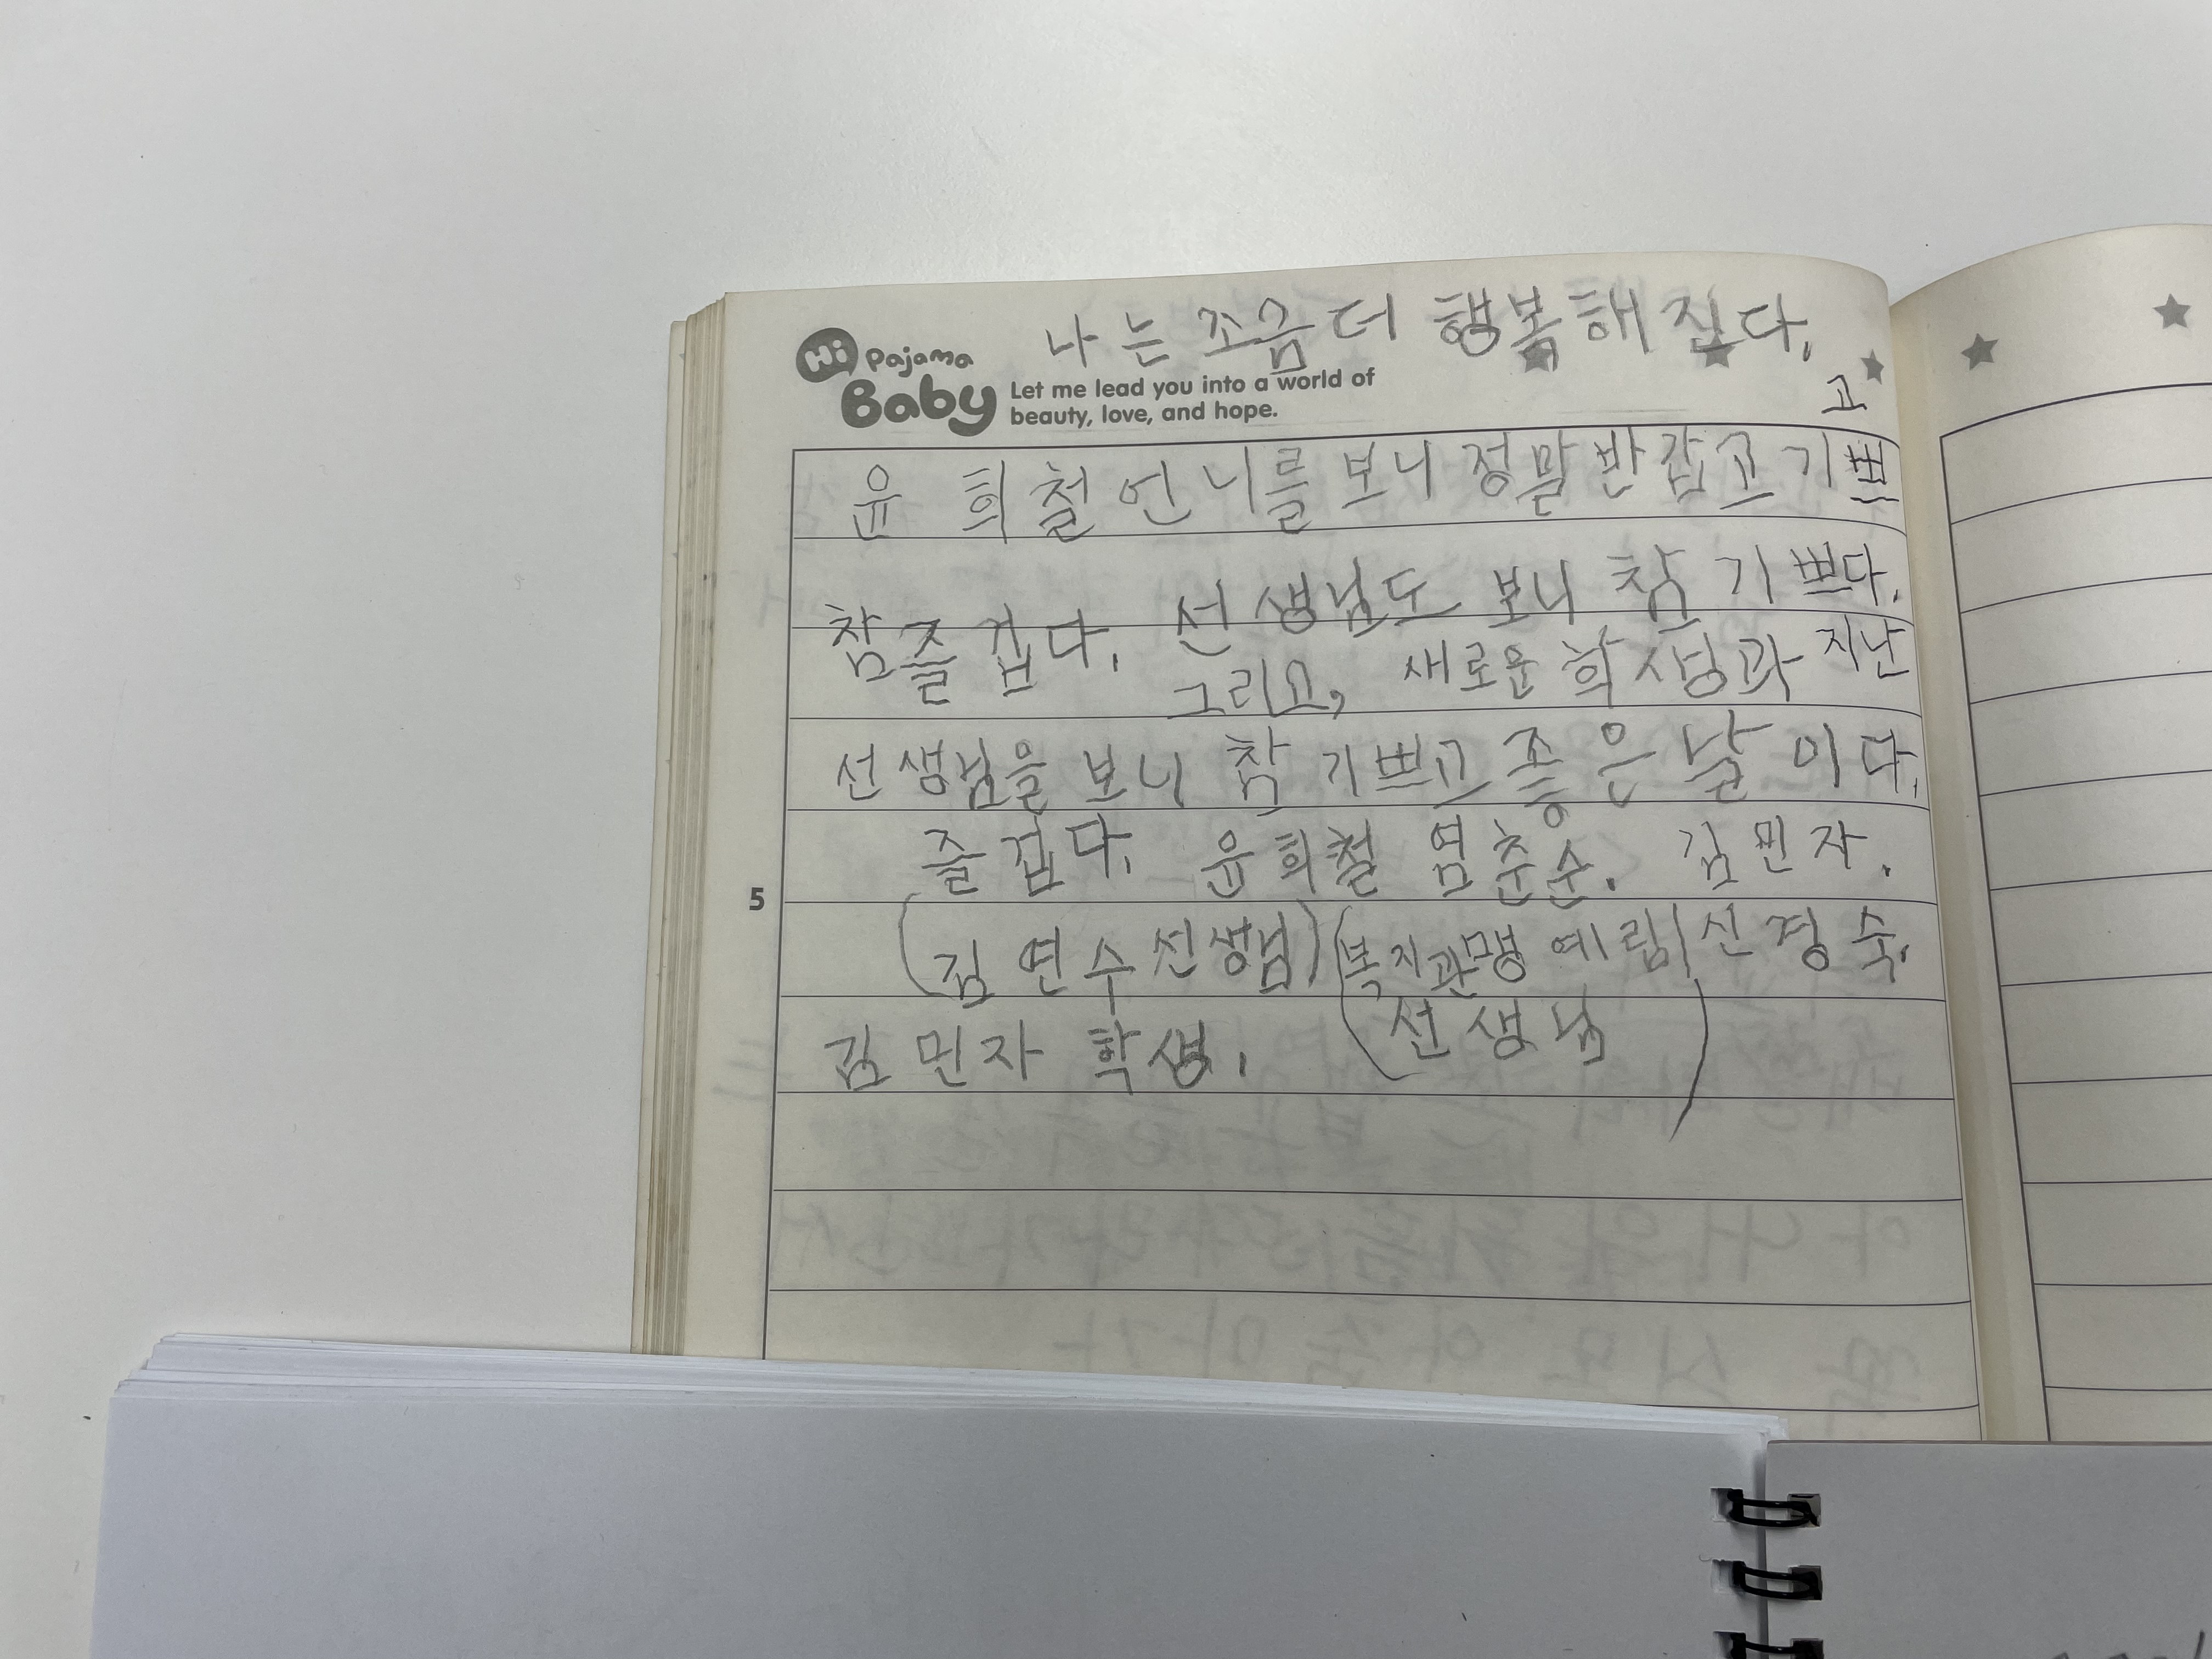 나는 조금 더 행복해 진다.
Hi Pajama Baby
Let me lead you into a world of
beauty, love, and hope.
고
윤 희철언니를 보니 정말반갑고 기쁘
참즐겁다. 선생님도 보니 참 기쁘다.
그리고, 새로운 학생과 지난
선생님을 보니 참 기쁘고 좋은 날이다.
즐겁다. 윤희철 염춘순. 김민자.
5
(김연수선생님) (복지관맹예림 신경숙.
김민자 학생. 선생님)